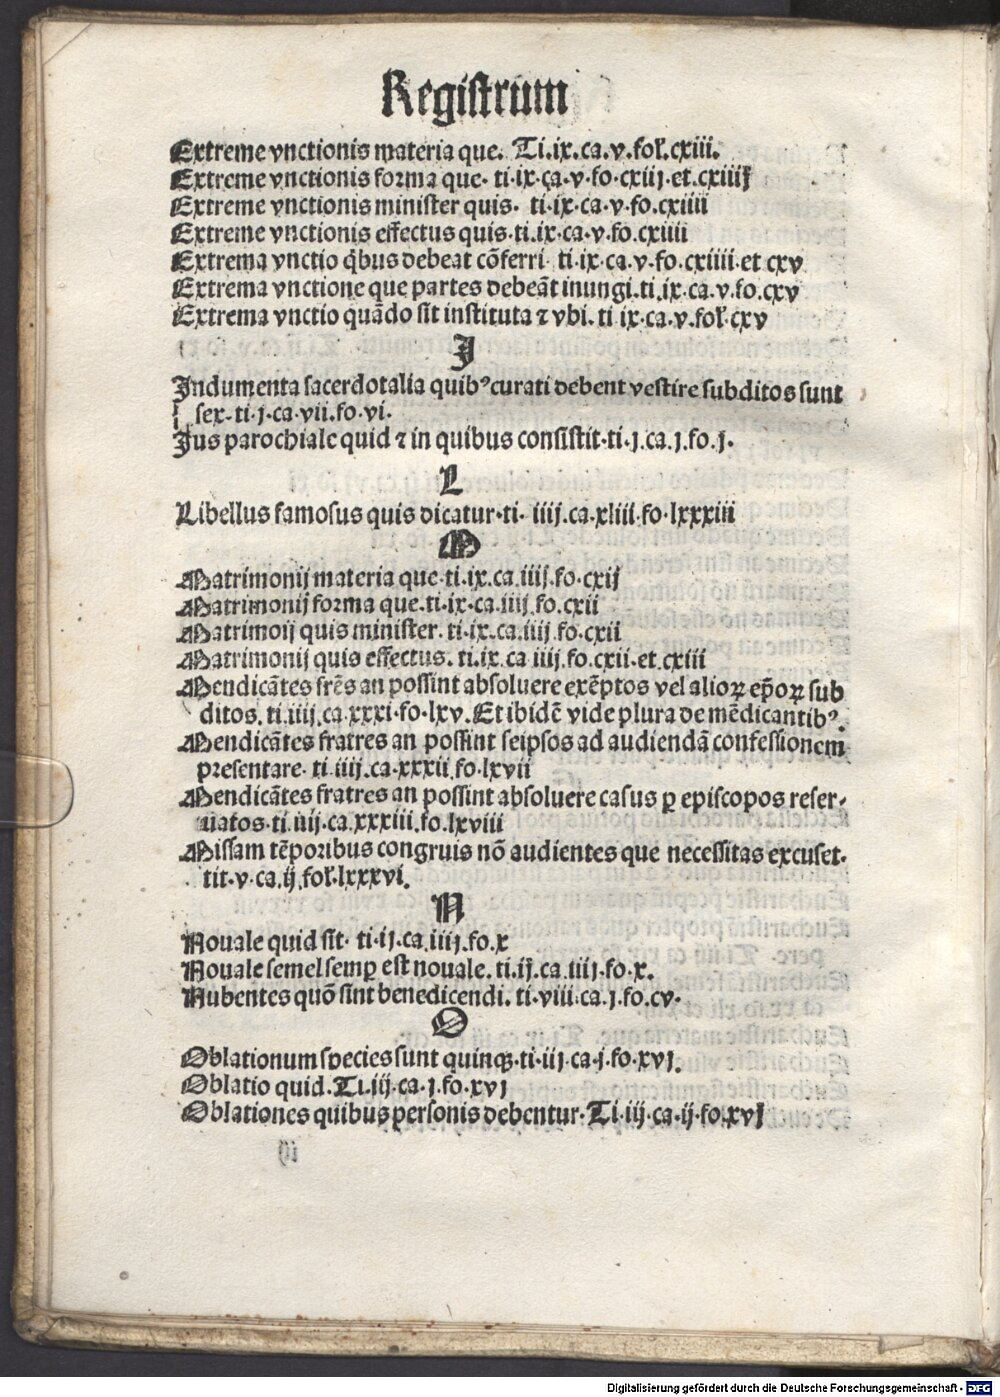 Registrum
Extreme vnctionis materia que. Ti.ix.ca.v.fol.cxiii.
Extreme vnctionis forma que. ti.ix.ca.v.fo.cxiij.et.cxiiij
Extreme vnctionis minister quis. ti.ix.ca.v.fo.cxiiii
Extreme vnctionis effectus quis.ti.ix.ca.v.fo.cxiiii
Extrema vnctio q̇bus debeat cōferri. ti.ix.ca.v.fo.cxiiii.et cxv
Extrema vnctione que partes debeāt inungi.ti.ix.ca.v.fo.cxv
Extrema vnctio quādo sit instituta ⁊ vbi. ti ix.ca.v.fol.cxv
I
Indumenta sacerdotalia quibꝰ curati debent vestire subditos sunt
sex. ti.j.ca.vii.fo.vi.
Jus parochiale quid ⁊ in quibus consistit.ti.j.ca.j.fo.j.
L
Libellus famosus quis dicatur.ti. iiij.ca.xliii.fo.lxxxiii
M
Matrimonij materia que.ti.ix.ca.iiij.fo.cxij
Matrimonij forma que.ti.ix.ca.iiij.fo.cxii
Matrimoij quis minister. ti.ix.ca.iiij.fo.cxii
Matrimonij quis effectus. ti.ix.ca iiij.fo.cxii.et.cxiii
Mendicātes frēs an possint absoluere exēptos vel alioꝝ ep̄oꝝ sub
ditos. ti.iiij.ca.xxxi.fo.lxv. Et ibidē vide plura de mēdicantibꝰ.
Mendicātes fratres an possint seipsos ad audiendā confessionem
presentare. ti.iiij.ca.xxxii.fo.lxvii
Mendicātes fratres an possint absoluere casus ꝑ episcopos reser-
uatos.ti.iiij.ca.xxxiii.fo.lxviii
Missam tēporibus congruis nō audientes que necessitas excuset.
tit.v.ca.ij.fol.lxxxvi.
N
Nouale quid sit. ti.ij.ca.iiij.fo.x
Nouale semel semꝑ est nouale. ti.ij.ca.iiij.fo.x.
Nubentes quō sint benedicendi. ti.viii.ca.j.fo.cv.
O
Oblationum species sunt quinqꝫ.ti.iij.ca.j.fo.xvj.
Oblatio quid. Ti.iij.ca.j.fo.xvj
Oblationes quibus personis debentur. Ti.iij.ca.ij.fo.xvj
Digitalisierung gefördert durch die Deutsche Forschungsgemeinschaft - DFG